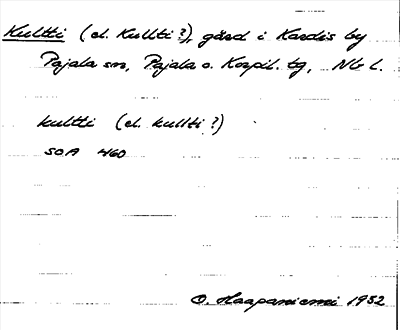 Kultti (el. Kullti?), gård i Kardis by
Pajala sn, Pajala o. Korpil. tg, Nb l.
kultti (el. kullti?)
SOA 460
O. Haapaniemi 1952